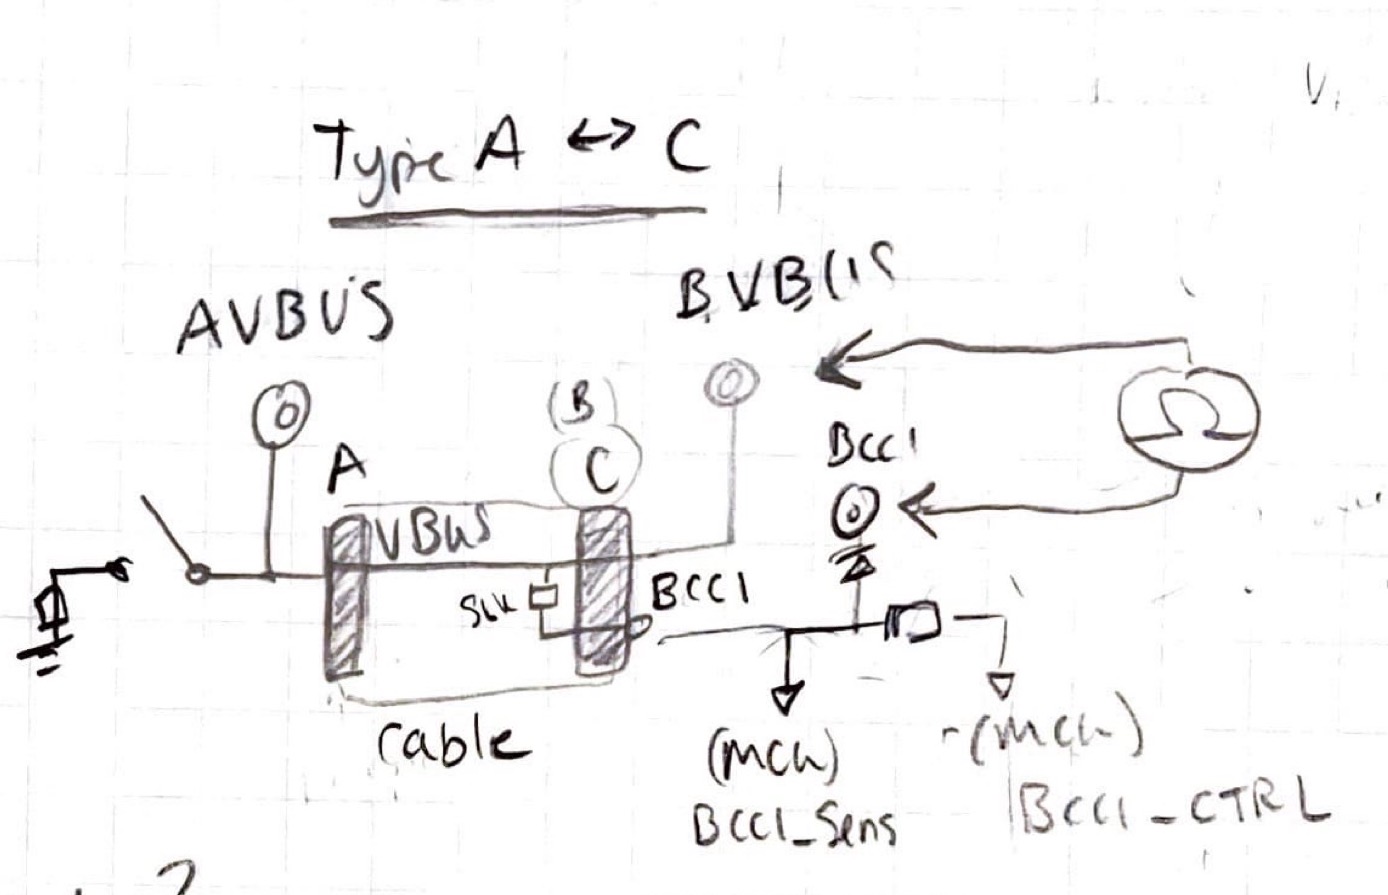 V.
Type A ↔ C
AVBUS
BVBUS
(B)
A
C
BCC1
VBUS
5.1K
BCC1
cable
(MCU)
BCC1_Sens
-(MCU)
BCC1_CTRL
2